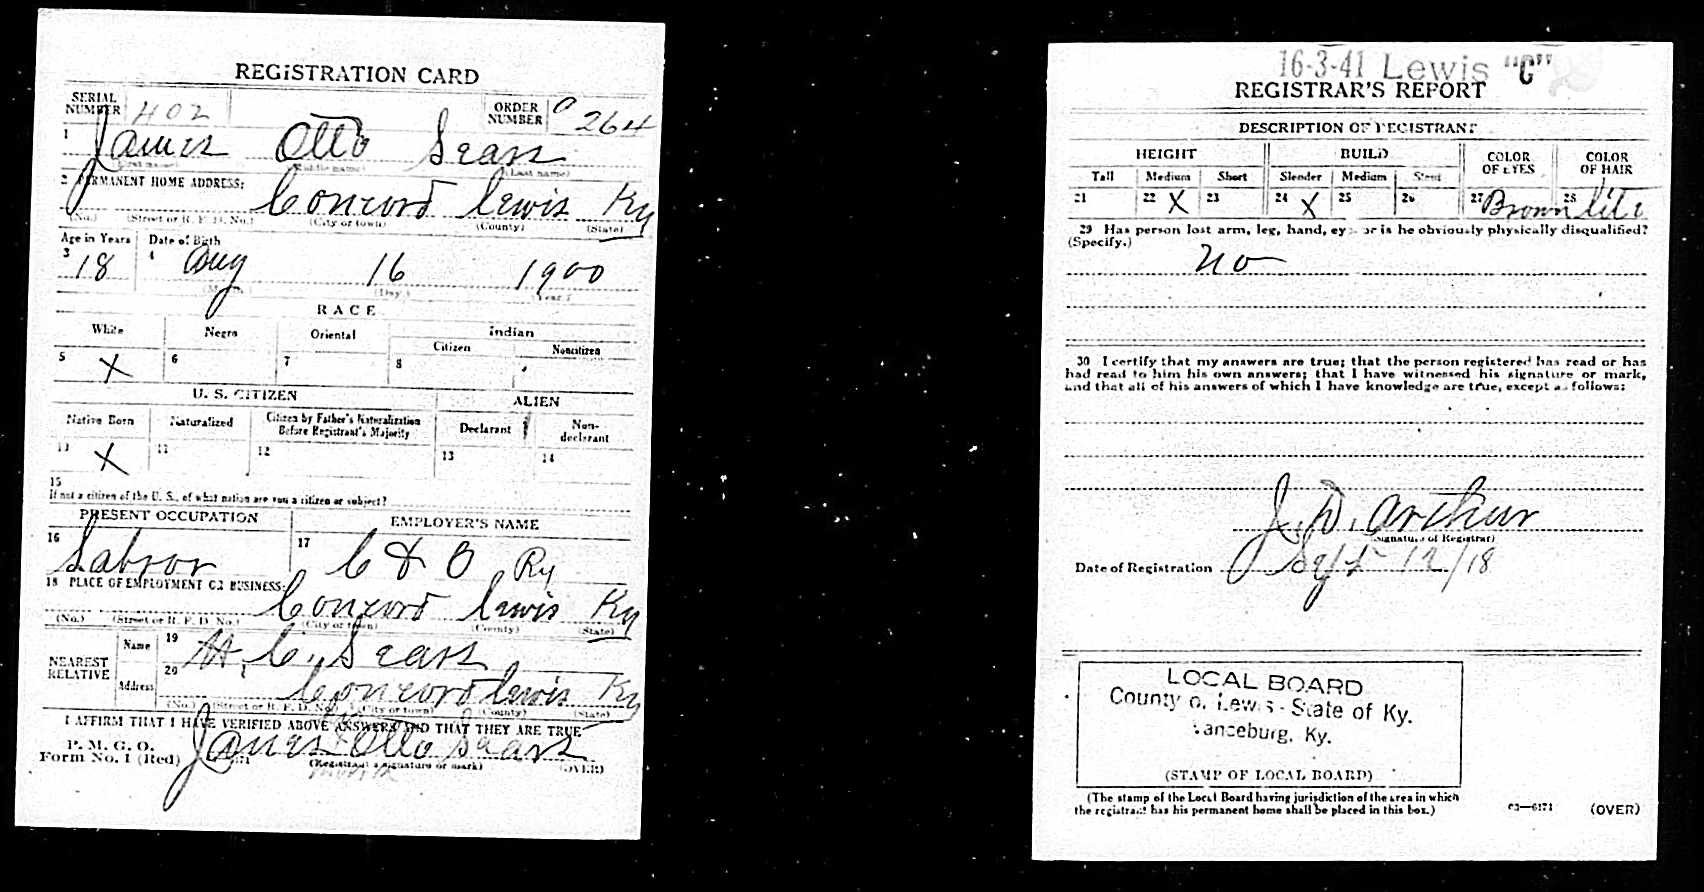 REGISTRATION CARD
SERIAL NUMBER 402 ORDER NUMBER 264
1 James Otto Sears
(First name) (Middle name) (Last name)
2 PERMANENT HOME ADDRESS:
Concord Lewis Ky
(No.) (Street or R. F. D. No.) (City or town) (County) (State)
Age in Years Date of Birth
3 18 4 Aug 16 1900
(Month) (Day.) (Year.)
RACE
White Negro Oriental Indian
Citizen Noncitizen
5 X 6 7 8
U. S. CITIZEN ALIEN
Native Born Naturalized Citizen by Father's Naturalization Before Registrant's Majority Declarant Non-declarant
10 X 11 12 13 14
15
If not a citizen of the U. S., of what nation are you a citizen or subject?
PRESENT OCCUPATION EMPLOYER'S NAME
16 Labror 17 C & O Ry
18 PLACE OF EMPLOYMENT OR BUSINESS:
Concord Lewis Ky
(No.) (Street or R. F. D. No.) (City or town) (County) (State)
NEAREST RELATIVE
Name 19 C. Sears
Address 20 Concord Lewis Ky
(No.) (Street or R. F. D. No.) (City or town) (County) (State)
I AFFIRM THAT I HAVE VERIFIED ABOVE ANSWERS AND THAT THEY ARE TRUE
P. M. G. O.
Form No. 1 (Red) James Otto Sears
(Registrant's signature or mark) (OVER)
16-3-41 Lewis "C"
REGISTRAR'S REPORT
DESCRIPTION OF REGISTRANT
HEIGHT BUILD COLOR OF EYES COLOR OF HAIR
Tall Medium Short Slender Medium Stout
21 22 X 23 24 X 25 26 27 Brown 28 Lite
29 Has person lost arm, leg, hand, eye, or is he obviously physically disqualified?
(Specify.)
No
30 I certify that my answers are true; that the person registered has read or has
had read to him his own answers; that I have witnessed his signature or mark,
and that all of his answers of which I have knowledge are true, except as follows:
J. D. Arthur
(Signature of Registrar)
Date of Registration Sept 12/18
LOCAL BOARD
County of Lewis - State of Ky.
Vanceburg, Ky.
(STAMP OF LOCAL BOARD)
(The stamp of the Local Board having jurisdiction of the area in which
the registrant has his permanent home shall be placed in this box.)
03—6171 (OVER)